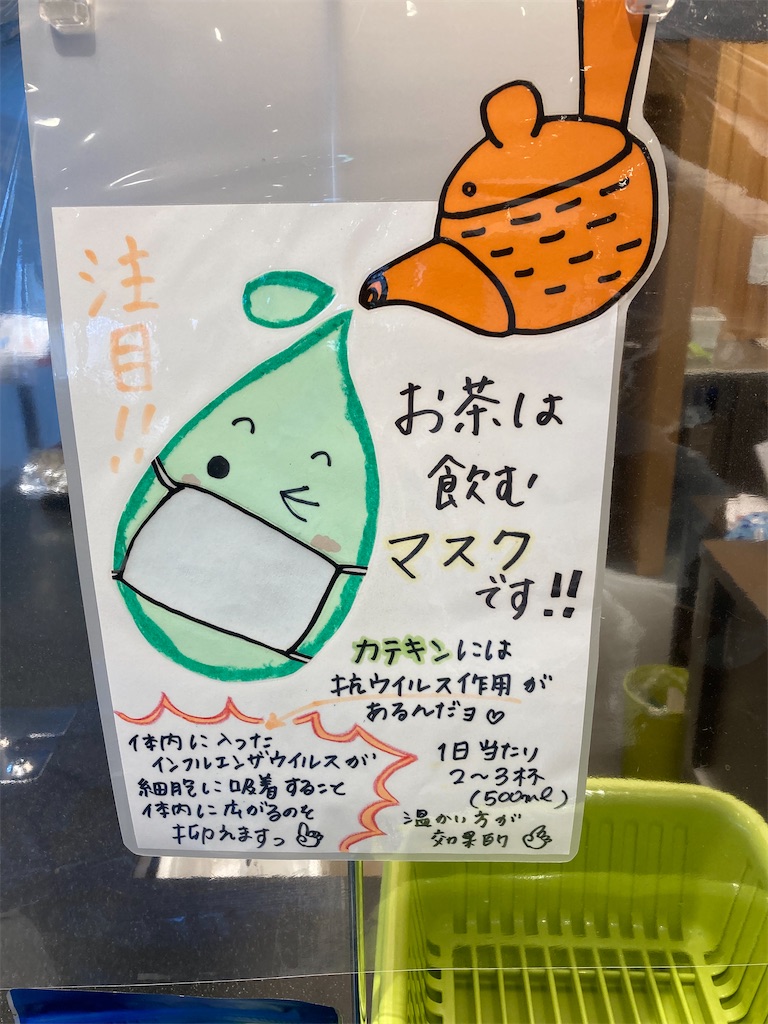 注目!!
お茶は
飲む
マスク
です!!
カテキンには
抗ウイルス作用が
あるんだョ♡
体内に入った
インフルエンザウイルスが
細胞に吸着すること
体内に広がるのを
抑えますっ
1日当たり
2~3杯
(500ml)
温かい方が
効果的